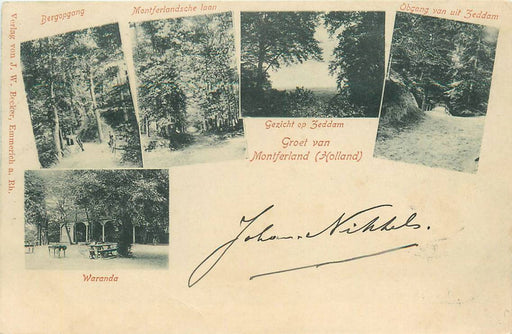 Bergopgang
Montferlandsche laan
Opgang van uit Zeddam
Verlag von J. W. Becker, Emmerich a. Rh.
Gezicht op Zeddam
Groet van
Montferland (Holland)
Waranda
Johan. Nikkels.